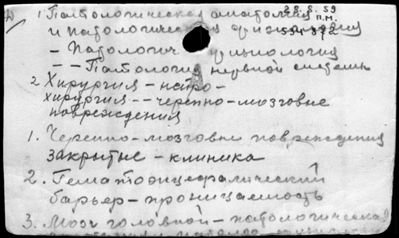 1. Патологическая анатомия
28.8.59
и патологическая физиология
п.м.
534 372
- Патологич физиология
- - Патология нервной системы
2. Хирургия - нейро -
хирургия - - черепно-мозговые
повреждения
1. Черепно-мозговые повреждения
закрытые - клиника
2. Гематоэнцефалический
барьер - проницаемость
3. Мозг головной - патологическая